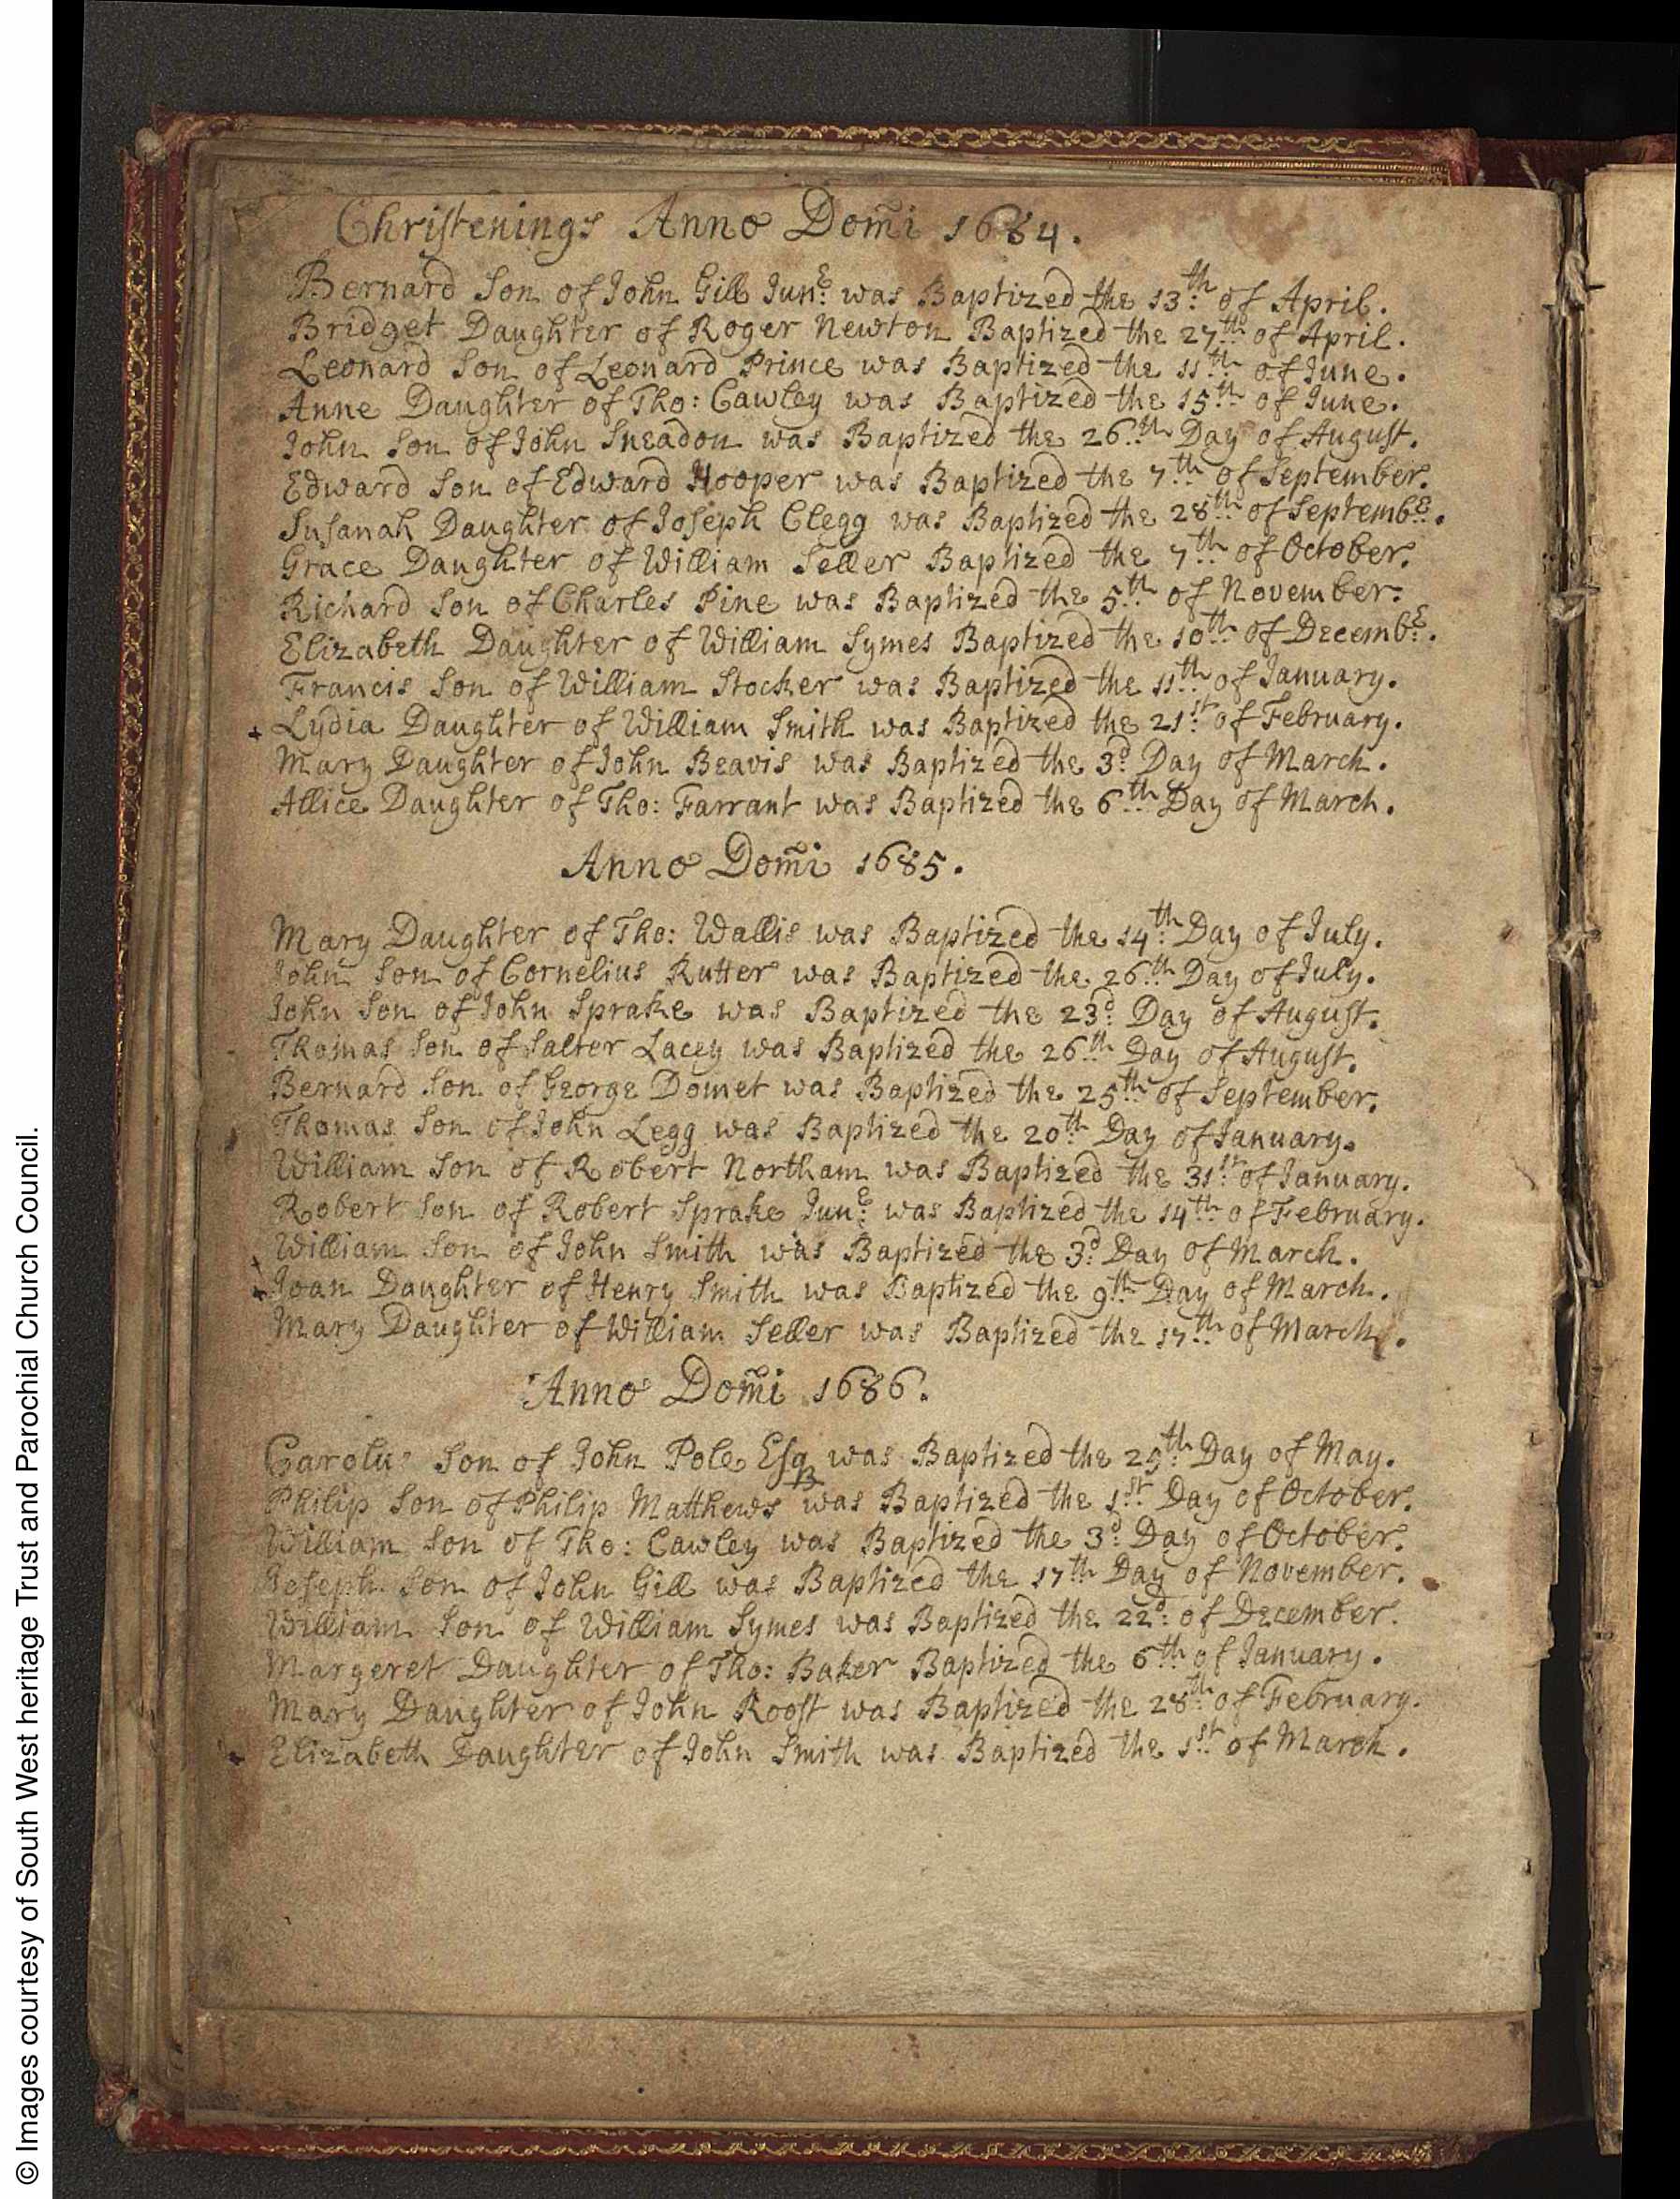 Christenings Anno Dom̃i 1684.
Bernard Son of John Gill Junr: was Baptized the 13th: of April.
Bridget Daughter of Roger Newton Baptized the 27th of April.
Leonard Son of Leonard Prince was Baptized the 11th of June.
Anne Daughter of Tho: Cawley was Baptized the 15th of June.
John Son of John Sneadon was Baptized the 26th Day of August.
Edward Son of Edward Hooper was Baptized the 7th of September.
Susanah Daughter of Joseph Clegg was Baptized the 28th of Septembr.
Grace Daughter of William Seller Baptized the 7th of October.
Richard Son of Charles Pine was Baptized the 5th of November:
Elizabeth Daughter of William Symes Baptized the 10th of Decembr.
Francis Son of William Stocker was Baptized the 11th of January.
+ Lydia Daughter of William Smith was Baptized the 21st of February.
Mary Daughter of John Beavis was Baptized the 3d: Day of March.
Allice Daughter of Tho: Farrant was Baptized the 6th Day of March.
Anno Dom̃i 1685.
Mary Daughter of Tho: Wallis was Baptized the 14th: Day of July.
John Son of Cornelius Rutter was Baptized the 26th Day of July.
John Son of John Sprake was Baptized the 23d: Day of August.
Thomas Son of Salter Lacey was Baptized the 26th Day of August.
Bernard Son of George Domet was Baptized the 25th of September.
Thomas Son of John Legg was Baptized the 20th Day of January.
William Son of Robert Northam was Baptized the 31st of January.
Robert Son of Robert Sprake Junr: was Baptized the 14th of February.
William Son of John Smith was Baptized the 3d: Day of March.
Joan Daughter of Henry Smith was Baptized the 9th Day of March.
Mary Daughter of William Seller was Baptized the 17th of March.
Anno Dom̃i 1686.
Carolus Son of John Pole Esq was Baptized the 25th: Day of May.
Philip Son of Philip Matthews was Baptized the 1st Day of October.
William Son of Tho: Cawley was Baptized the 3d: Day of October.
Joseph Son of John Gill was Baptized the 17th Day of November.
William Son of William Symes was Baptized the 22d: of December.
Margeret Daughter of Tho: Baker Baptized the 6th of January.
Mary Daughter of John Roost was Baptized the 28th of February.
Elizabeth Daughter of John Smith was Baptized the 1st of March.
© Images courtesy of South West heritage Trust and Parochial Church Council.